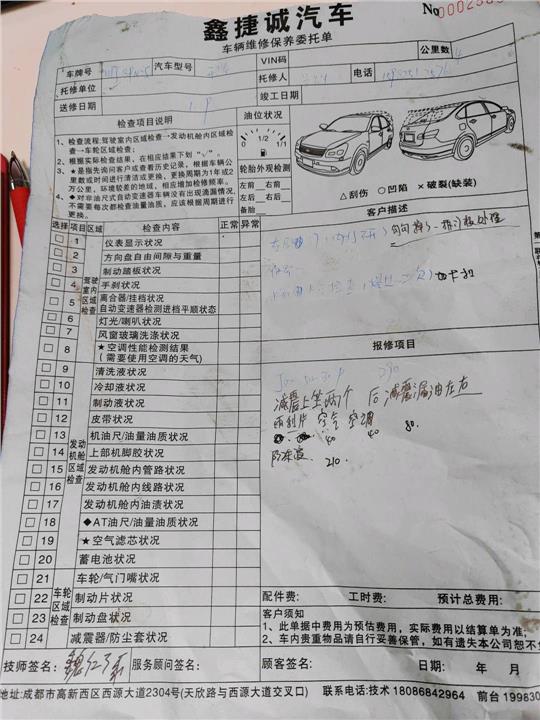 鑫捷诚汽车
车辆维修保养委托单
No
车牌号
汽车型号
VIN码
公里数
托修单位
托修人
电话
送修日期
竣工日期
检查项目说明
1、检查流程:驾驶室内区域检查→发动机舱内区域检查→车轮区域检查;
2、根据实际检查结果,在相应结果下划“√”。
3、★是指先询问客户或查看历史记录,根据车辆公里数或时间进行清洁或更换,更换周期为1年或2万公里,环境较差的地域,相应增加检修频率。
4、◆对非油尺式自动变速器车辆没有出现滴漏情况,不需要每次都检查油量油质,应该根据周期进行更换。
油位状况
0 1/2 1/1
轮胎外观检测
左前 右前
左后 右后
备胎
△刮伤 ○凹陷 ×破裂(缺装)
选择 项目 区域 检查内容 正常 异常
驾驶室内区域检查
1 仪表显示状况
2 方向盘自由间隙与重量
3 制动踏板状况
4 手刹状况
5 离合器/挂档状况
自动变速器检测进档平顺状态
6 灯光/喇叭状况
7 风窗玻璃洗涤状况
8 ★空调性能检测结果
(需要使用空调的天气)
发动机舱区域检查
9 清洗液状况
10 冷却液状况
11 制动液状况
12 皮带状况
13 机油尺/油量油质状况
14 上部机脚胶状况
15 发动机舱内管路状况
16 发动机舱内线路状况
17 发动机舱内油渍状况
18 ◆AT油尺/油量油质状况
19 ★空气滤芯状况
20 蓄电池状况
车轮区域检查
21 车轮/气门嘴状况
22 制动片状况
23 制动盘状况
24 减震器/防尘套状况
客户描述
报修项目
减震上坐两个 后减震漏油左右
雨刮片 空气 空调
40 40 80.
防冻液 210.
配件费: 工时费: 预计总费用:
客户须知
1、此单据中费用为预估费用,实际费用以结算单为准;
2、车内贵重物品请自行妥善保管,如有遗失本公司恕不
技师签名: 服务顾问签名: 顾客签名: 日期: 年 月
地址:成都市高新西区西源大道2304号(天欣路与西源大道交叉口) 联系电话:技术 18086842964 前台 199830